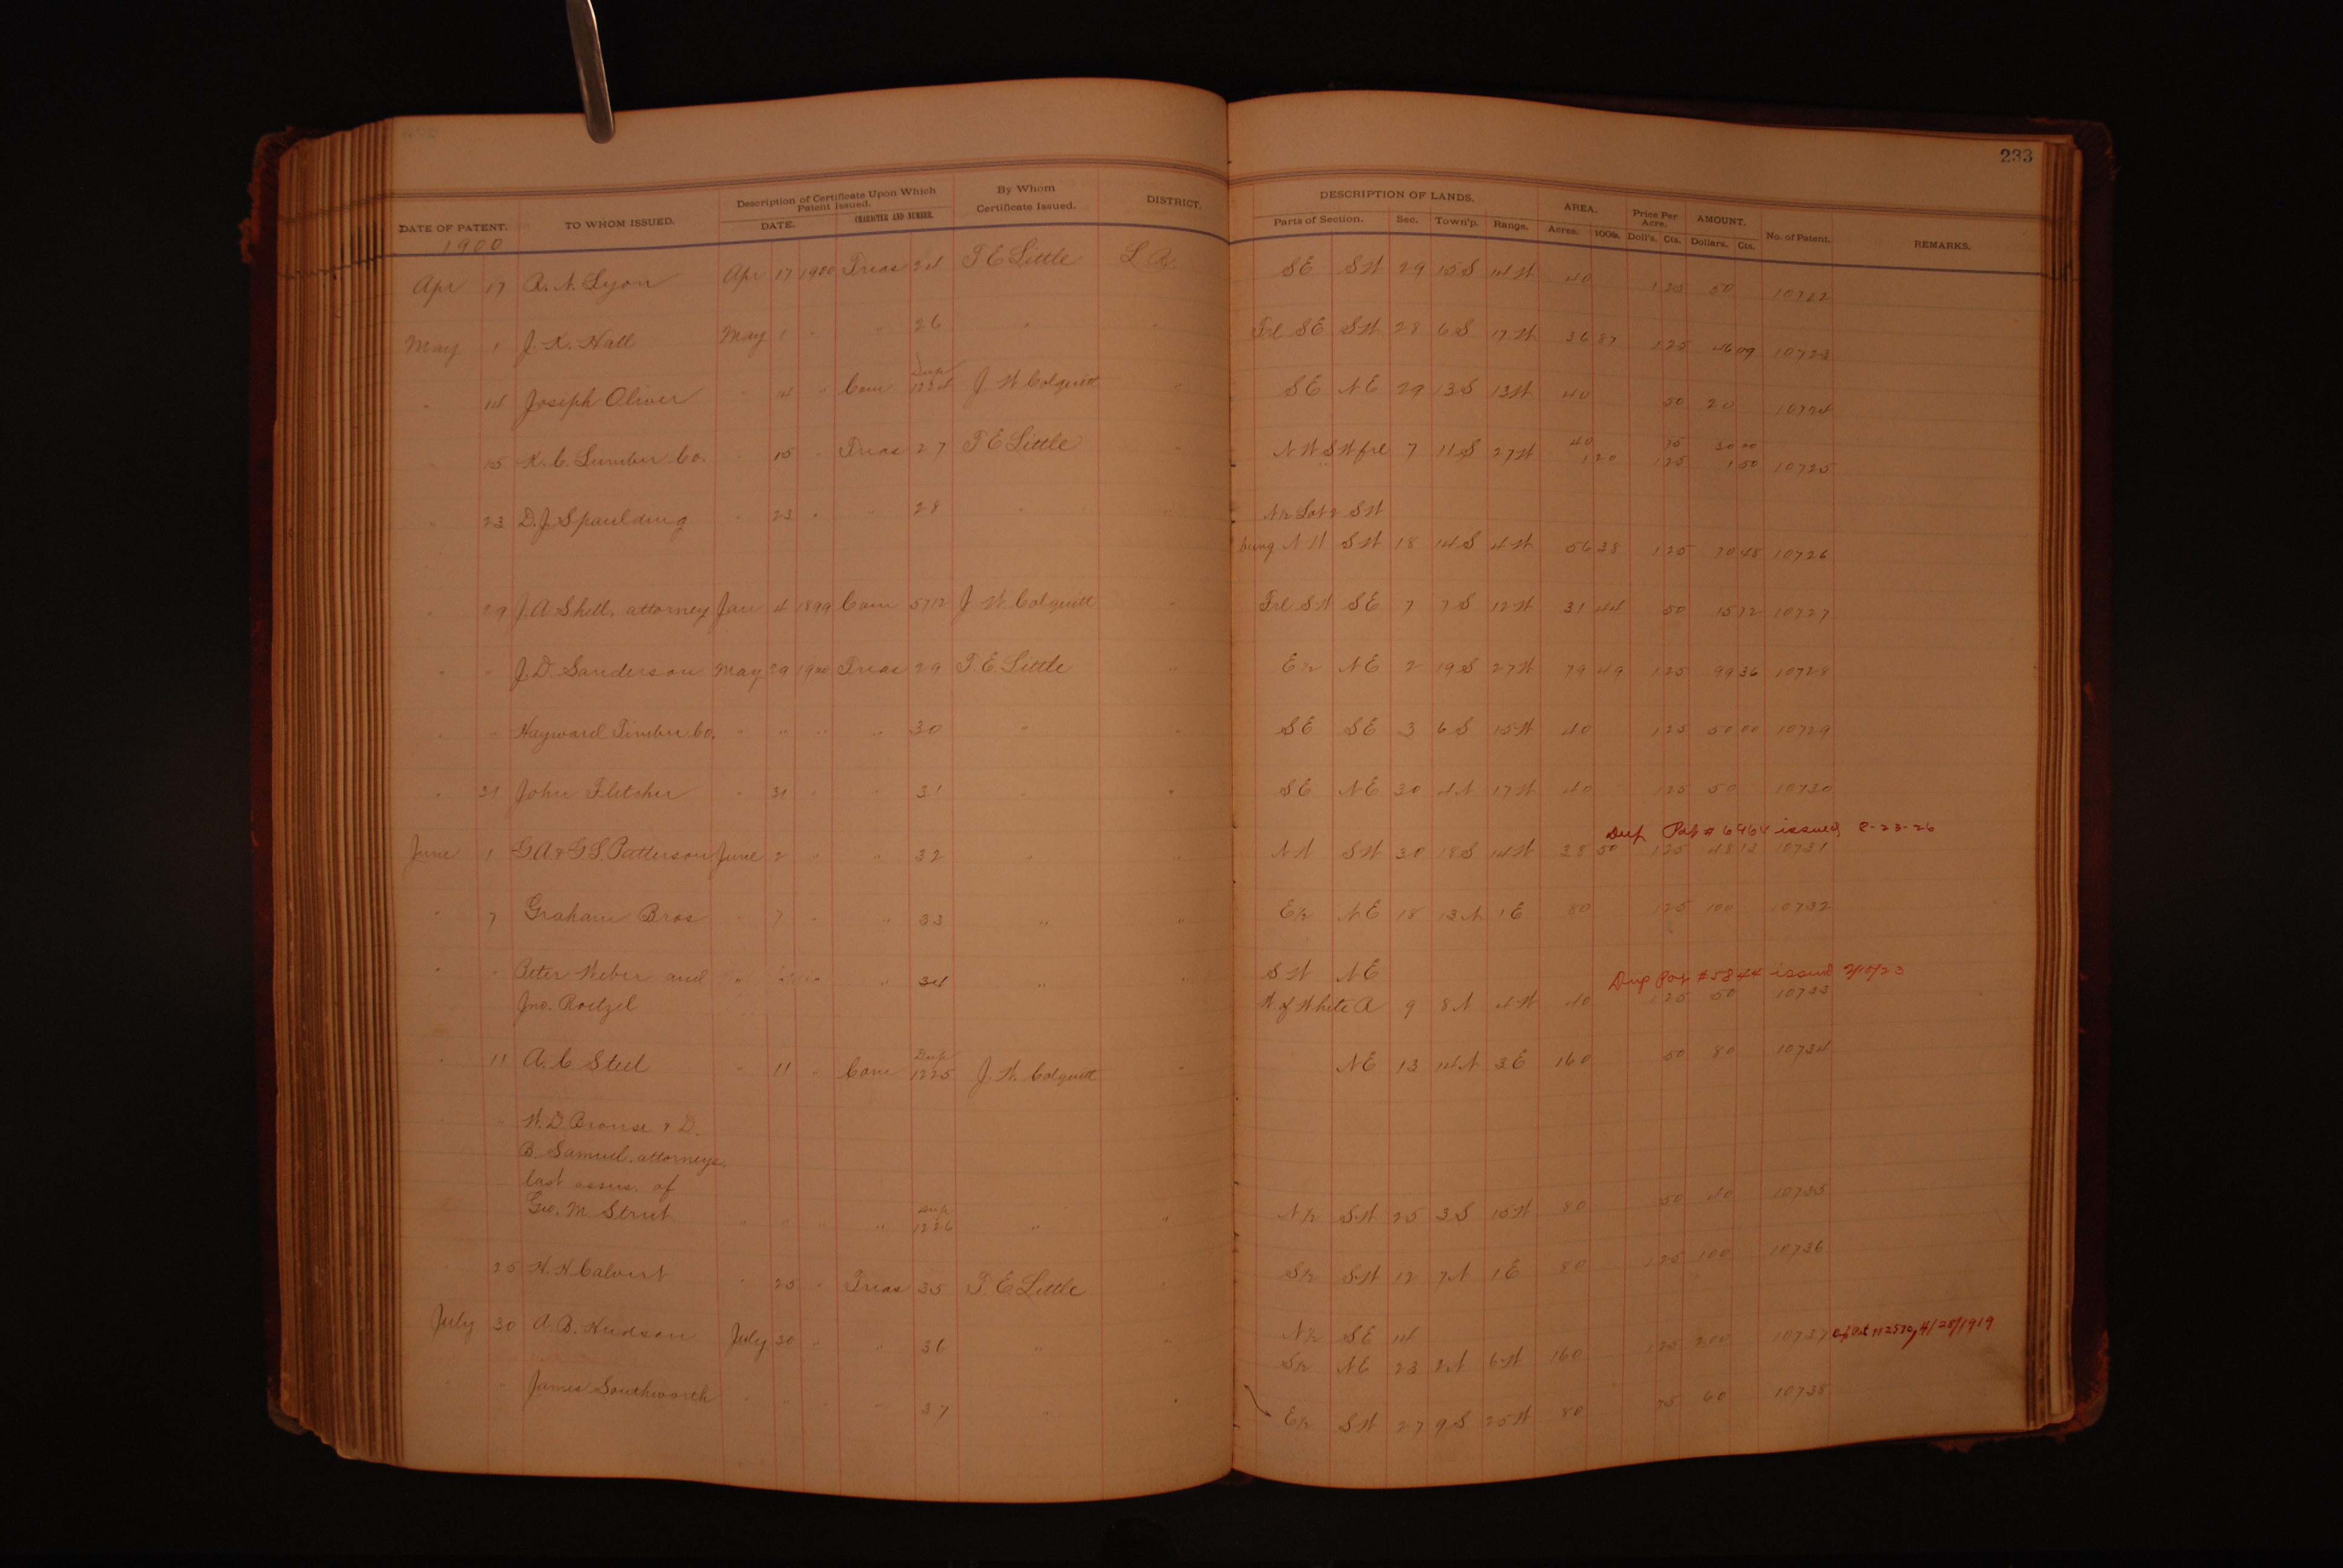 233
DATE OF PATENT. TO WHOM ISSUED. Description of Certificate Upon Which Patent Issued. DATE. CHARACTER AND NUMBER. By Whom Certificate Issued. DISTRICT. DESCRIPTION OF LANDS. Parts of Section. Sec. Town'p. Range. AREA. Acres. 100ths. Price Per Acre. Doll's. Cts. AMOUNT. Dollars. Cts. No. of Patent. REMARKS.
1900
Apr 17 R. N. Lyon Apr 17 1900 Treas 24 T E Little L R. SE SW 29 15S 14W 40 1 25 50 10722
May 1 J. K. Hall May 1 " " 26 " " Frl SE SW 28 6S 17W 36 87 1 25 46 09 10723
" 14 Joseph Oliver " 14 " Com Dup 1224 J W Colquitt " SE NE 29 13S 13W 40 50 20 10724
" 15 K. C. Lumber Co. " 15 " Treas 27 T E Little " NW SW frl 7 11S 27W 40 75 30 00
1 20 1 25 1 50 10725
" 23 D. J. Spaulding " 23 " " 28 " " N½ Lot 2 SW
being NW SW 18 14S 4W 56 38 1 25 70 48 10726
" 29 J. A. Shell, attorney Jan 4 1899 Com 5712 J W Colquitt " Frl SW SE 7 7S 12W 31 44 50 15 72 10727
" " J. D. Sanderson May 29 1900 Treas 29 T. E. Little " E½ NE 2 19S 27W 79 49 1 25 99 36 10728
" " Hayward Timber Co. " " " " 30 " " SE SE 3 6S 15W 40 1 25 50 00 10729
" 31 John Fletcher " 31 " " 31 " " SE NE 30 4N 17W 40 1 25 50 10730
Dup Pat # 6964 issued 8-23-26
June 1 G A. & G S. Patterson June 2 " " 32 " " NW SW 30 18S 14W 38 50 1 25 48 13 10731
" 7 Graham Bros " 7 " " 33 " " E½ NE 18 13N 1E 80 1 25 100 10732
" " Peter Weber and " 34 " " SW NE Dup Pat #5844 issued 2/10/23
Jno. Roetzel W of White R 9 8N 4W 40 1 25 50 10733
" 11 A. C. Steel " 11 " Com Dup 1225 J. W. Colquitt " NE 13 14N 3E 160 50 80 10734
" " W. D. Brouse & D.
B. Samuel, attorneys,
last assns. of
Geo. M. Strut " " " " Dup 1226 " " N½ SW 25 3S 15W 80 50 40 10735
" 25 H. H. Calvert " 25 " Treas 35 T. E. Little " S½ SW 12 7N 1E 80 1 25 100 10736
July 30 A. B. Hudson July 30 " " 36 " " N½ SE 14
S½ NE 23 2N 6W 160 1 25 200 10737 4/28/1919
" " James Southworth " " " " 37 " " E½ SW 27 9S 25W 80 75 60 10738